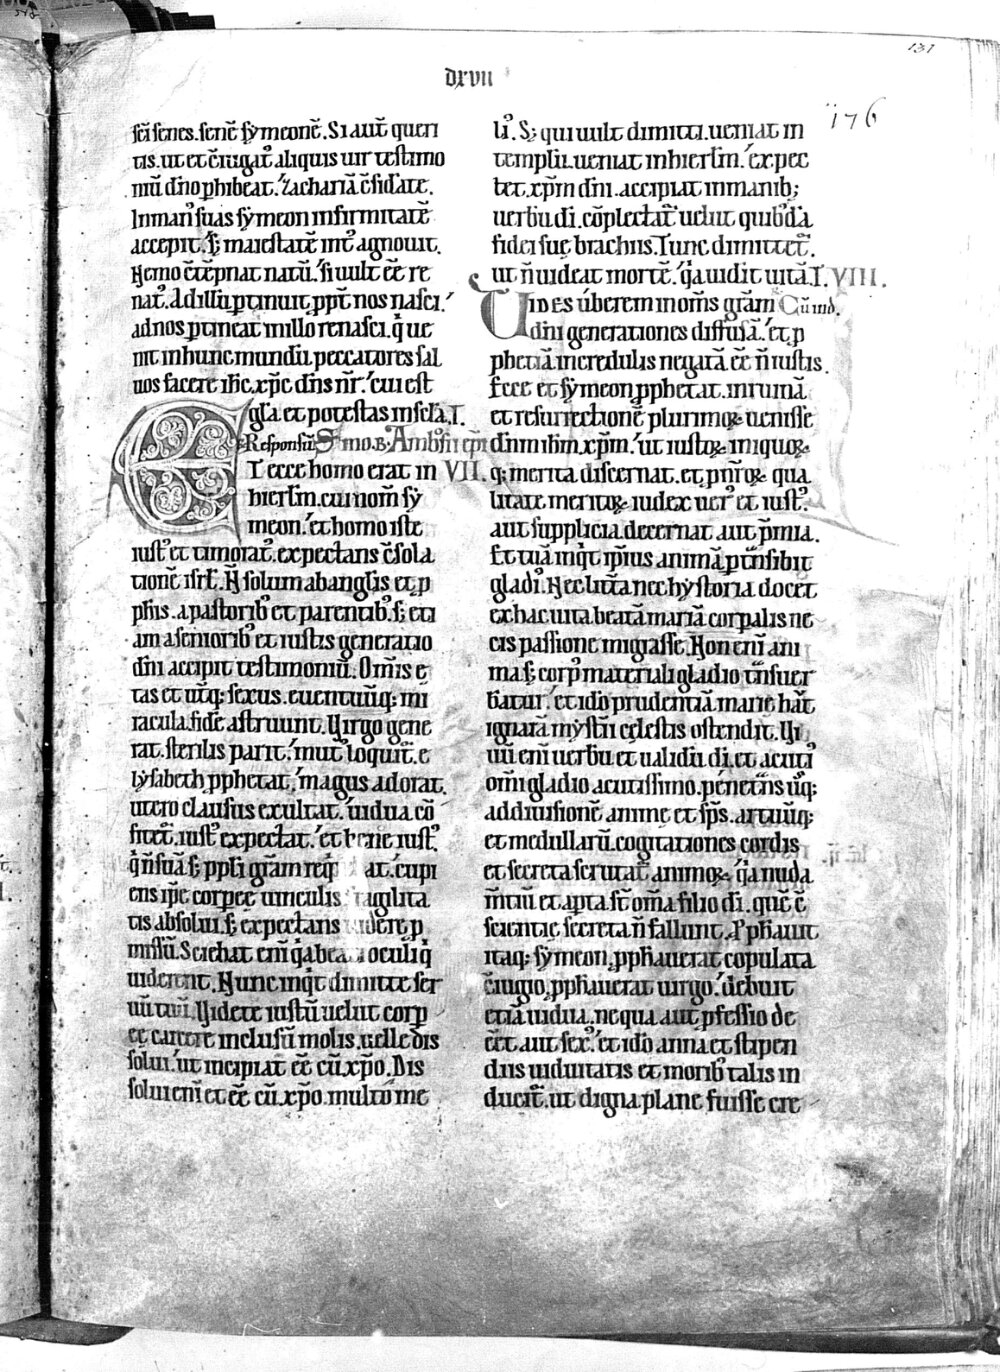 131
dxvii
176
sc̄i senes. senē sẏmeonē. Si aut̄ queri
tis. ut et c̄iugat᷒ aliquis uir testimo
niū dn̄o phibeat. zachariā c̄siderate.
In man᷒ suas sẏmeon infirmitatē
accepit. s; maiestatē int᷒ agnouit.
Nemo c̄tēpnat natū. si uult eē re
nat᷒. Ad illū ptinuit ppt̄ nos nasci.
ad nos ptineat in illo renasci. q̇ ue
nit in hunc mundū peccatores sal
uos facere ih̄c xp̄c dn̄s nr̄. cui est
gl̄a et potestas in scl̄a. I.
Responsū Smo. B. Ambrosii ep̄i
Et ecce homo erat in VII.
hierl̄m. cui nom̄ sẏ
meon. et homo iste
iust᷒ et timorat᷒. expectans c̄sola
tionē isrl̄. N̄ solum ab angl̄is et p
ph̄is. a pastorib᷒ et parentib᷒. s; eti
am a seniorib᷒ et iustis generatio
dn̄i accipit testimoniū. Om̄is ę
tas et utq; sexus. euentuūq; mi
racula. fidē astruunt. Virgo gene
rat. sterilis parit. mut᷒ loquit̄. e
lẏsabeth pphetat. magus adorat.
utero clausus exultat. uidua cō
fitet̄. iust᷒ expectat. et bene iust᷒.
q̇ n̄ suā s; ppl̄i gr̄am req at. cupi
ens ip̄e corpeę uinculis fragilita
tis absolui. s; expectans uidere p
missū. Sciebat eni̅ q̇a beati oculi q̇
uiderent. Nunc inq̇t dimitte ser
uū tuū. Videte iustū uelut corp
eę carcere inclusū molis. uelle dis
solui. ut incipiat eē cū xp̄o. Dis
solui eni̅ et eē cū xp̄o. multo me
li᷒. S; qui uult dimitti. ueniat in
templū. ueniat in hierl̄m. expec
tet xp̄m dn̄i. accipiat in manib;
uerbū di̅. cōplectat̄ uelut quib᷒dā
fidei suę brachiis. Tunc dimittet̄.
ut n̄ uideat mortē. q̇a uidit uitā. I. VIII.
Vides uberem in om̄s gr̄am Cū ind.
dn̄i generationes diffusā. et p
phetiā incredulis negatā eē n̄ iustis.
Ecce et sẏmeon pphetat. in ruinā
et resurrectionē plurimoꝝ uenisse
dn̄m ih̄m xp̄m. ut iustoꝝ iniquoꝝ
q; merita discernat. et p nr̄oꝝ qua
litate meritoꝝ. iudex uer᷒ et iust᷒.
aut supplicia decernat aut p̄mia.
Et tuā inq̇t ip̄ius animā ptn̄sibit
gladi᷒. Nec litt̄a nec hẏstoria docet
ex hac uita beatā mariā corpalis ne
cis passione migasse. Non eni̅ ani
ma s; corp᷒ materiali gladio tn̄suer
batur. et ido̅ prudentiā marię haut
ignarā mẏstii celestis ostendit. Vi
uū eni̅ uerbū et ualidū di̅. et acuti᷒
om̄i gladio acutissimo. penetn̄s usq;
ad diuisionē animę et sp̄s. artuūq;
et medullarū. cogitationes cordis
et secreta scrutat̄ animoꝝ. q̇a nuda
om̄ia et apta st̄ om̄a filio di̅. quē c̄
scientię secreta n̄ fallunt. Pphauit
itaq; sẏmeon. pphauerat copulata
c̄iugio. pphauerat uirgo. debuit
etiā uidua. ne qua aut pfessio de
eēt aut sex᷒. et ido̅ anna et stipen
diis uiduitatis et morib᷒ talis in
ducit̄. ut digna plane fuisse cre